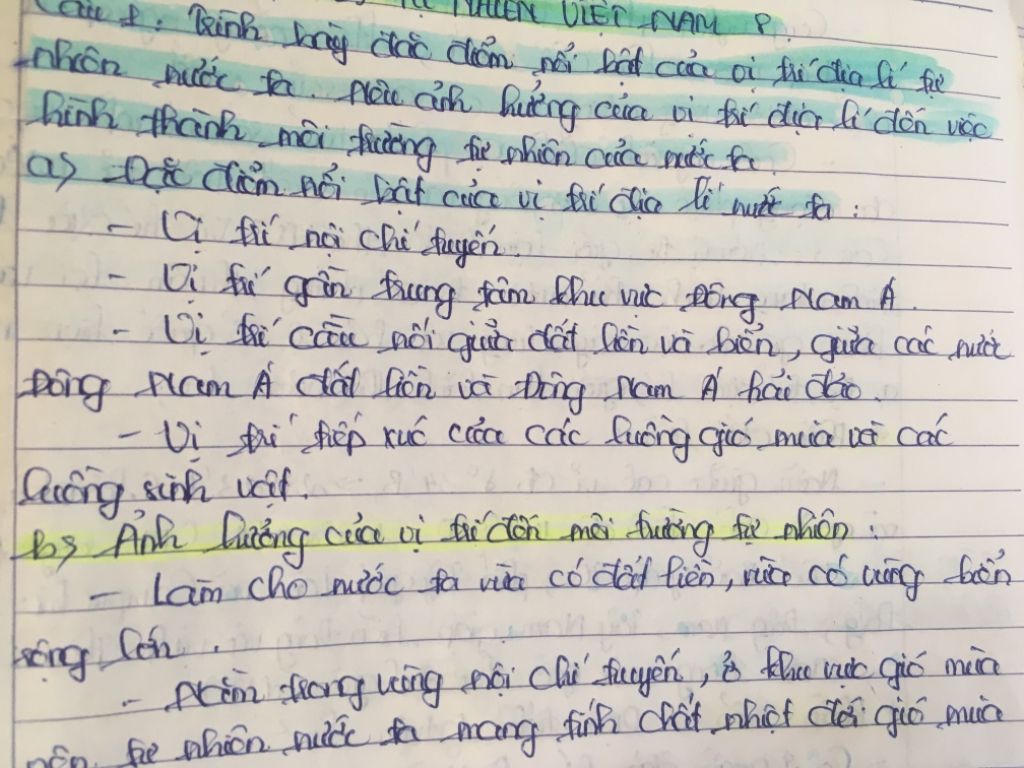 TỰ NHIÊN VIỆT NAM ?
Câu 1: Trình bày đặc điểm nổi bật của vị trí địa lí tự
nhiên nước ta. Nêu ảnh hưởng của vị trí địa lí đến việc
hình thành môi trường tự nhiên của nước ta.
a) Đặc điểm nổi bật của vị trí địa lí nước ta :
- Vị trí nội chí tuyến.
- Vị trí gần trung tâm khu vực Đông Nam Á.
- Vị trí cầu nối giữa đất liền và biển, giữa các nước
Đông Nam Á đất liền và Đông Nam Á hải đảo.
- Vị trí tiếp xúc của các luồng gió mùa và các
luồng sinh vật.
b) Ảnh hưởng của vị trí đến môi trường tự nhiên :
- Làm cho nước ta vừa có đất liền, vừa có vùng biển
rộng lớn.
- Nằm trong vùng nội chí tuyến, ở khu vực gió mùa
nên tự nhiên nước ta mang tính chất nhiệt đới gió mùa